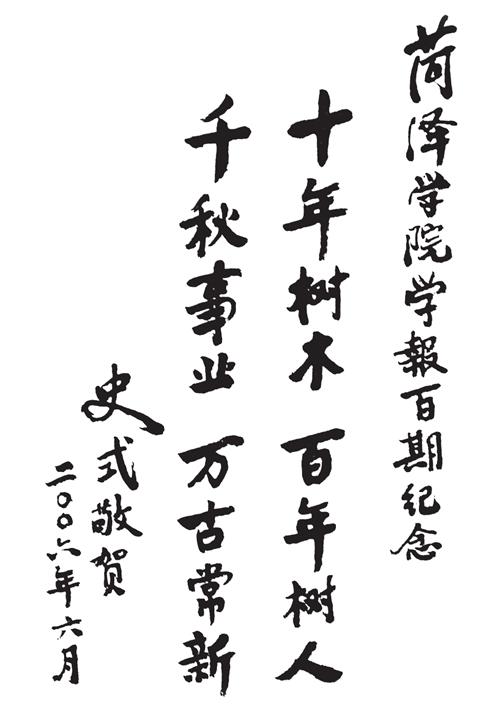 菏泽学院学報百期纪念
十年树木 百年树人
千秋事业 万古常新
史式敬贺
二〇〇六年六月